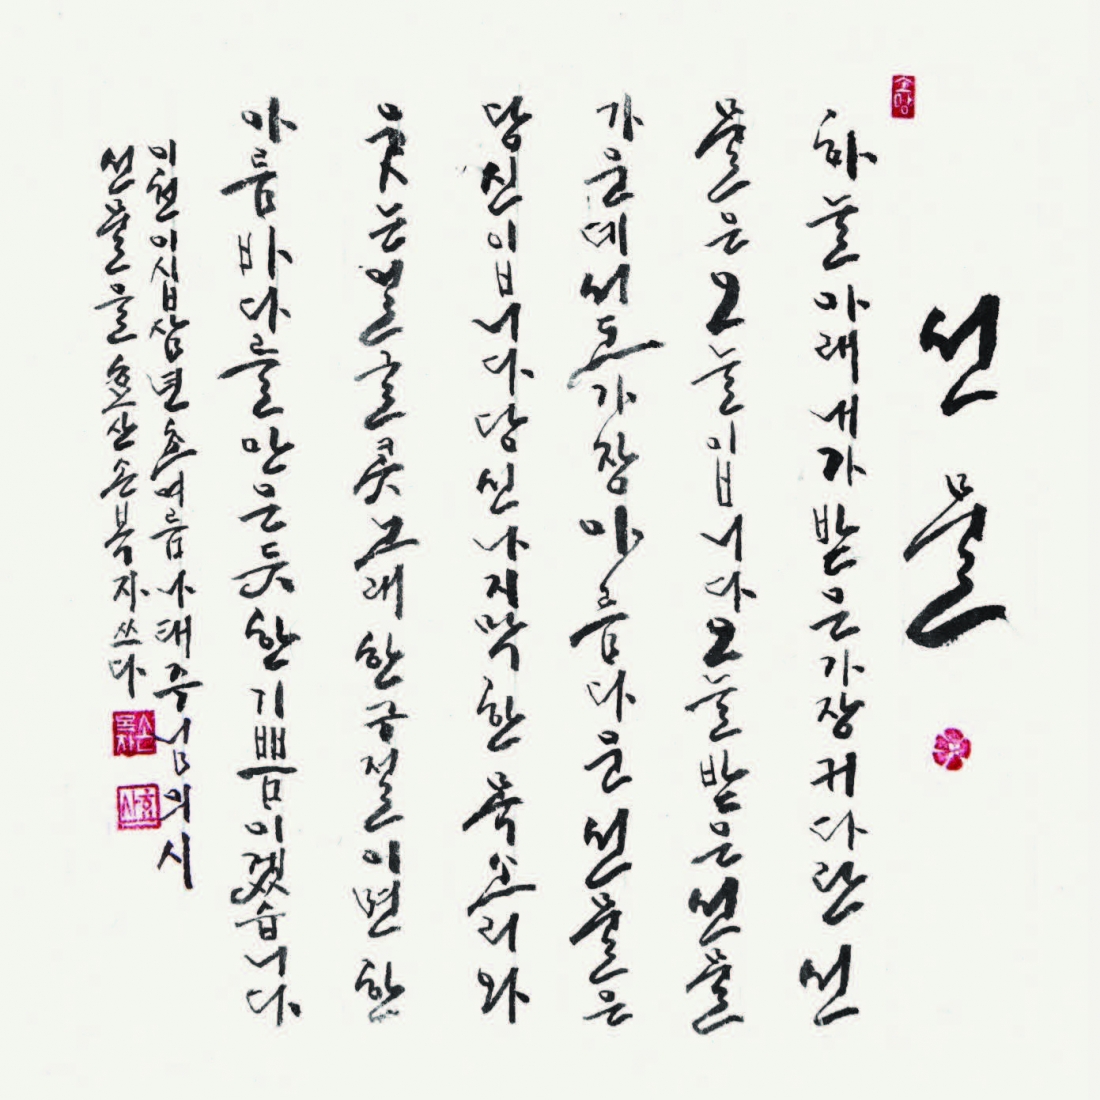 소망
선물
하늘아래내가받은가장커다란선
물은오늘입니다오늘받은선물
가운데서도가장아름다운선물은
당신입니다당신나지막한목소리와
웃는얼굴콧노래한구절이면한
아름바다를안은듯한기쁨이겠습니다
이천이십삼년초여름나태주님의시
선물을효산손복자쓰다
손복자
효산